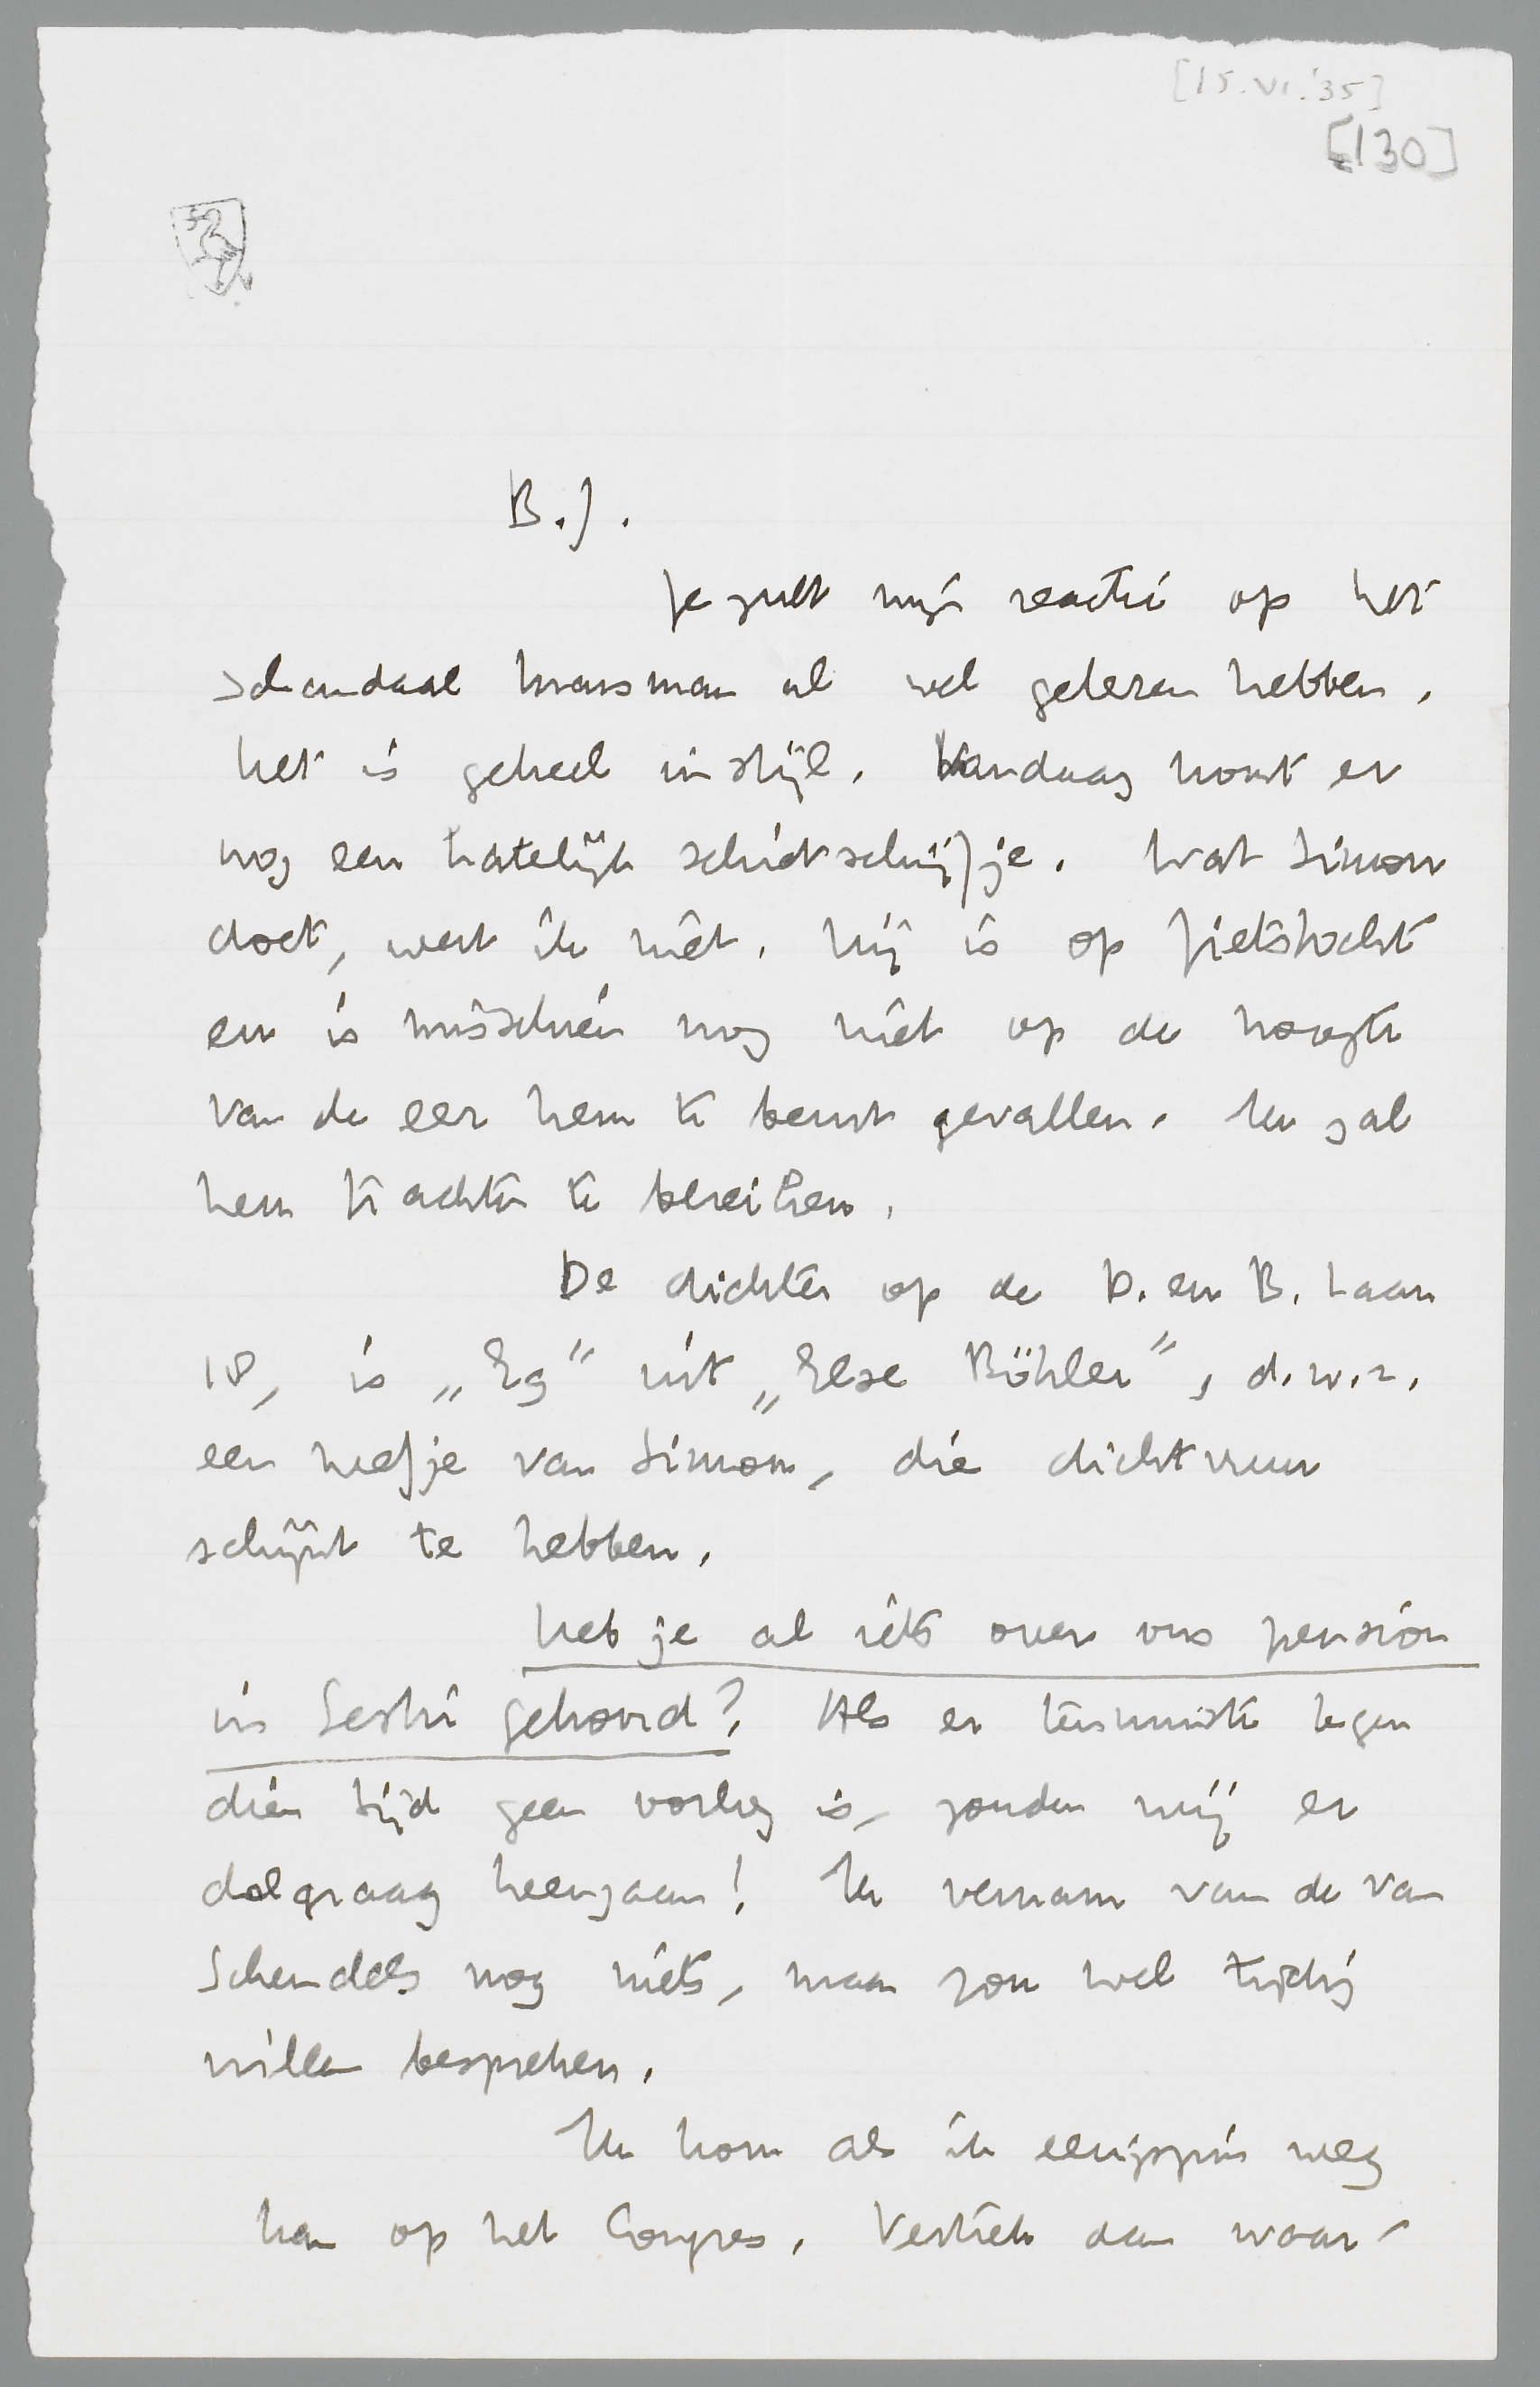 [15.VI.'35]
[130]
B.J.
Je zult mijn reactie op het
schandaal Marsman al wel gelezen hebben.
Het is geheel in stijl. Vandaag komt er
nog een hatelijk schotschrijfje. Wat Simon
doet, weet ik niet. Hij is op fietstocht
en is misschien nog niet op de hoogte
van de eer hem te beurt gevallen. Ik zal
hem trachten te bereiken.
De dichter op de B. en B. Laan
18, is „Eg” uit „Else Böhler”, d.w.z.
een neefje van Simon, die dichtvuur
schijnt te hebben.
Heb je al iets over ons pension
in Sestri gehoord? Als er tenminste tegen
dien tijd geen oorlog is, zouden wij er
dolgraag heengaan! Ik vernam van de van
Schendels nog niets, maar zou wel tijdig
willen bespreken.
Ik kom als ik eenigszins weg
kan op het Congres. Vertrek dan waar-